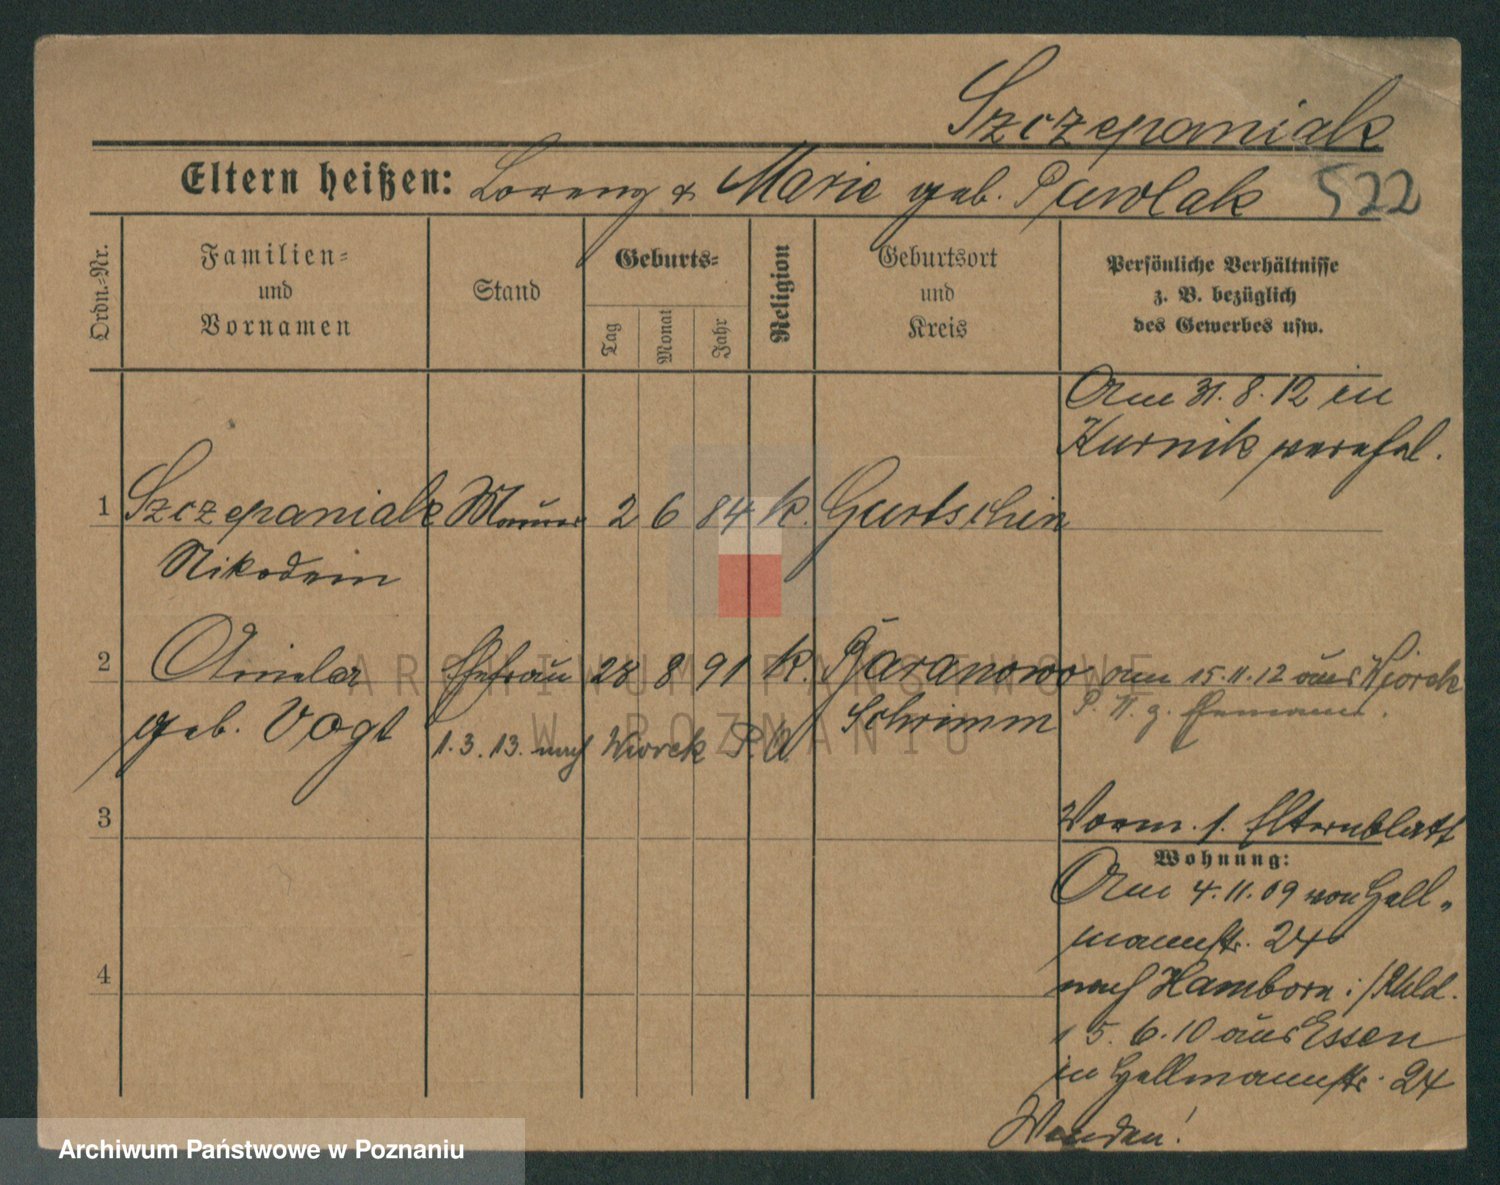 Szczepaniak
Eltern heißen: Lorenz & Marie geb. Pawlak 522
Ordn.-Nr.
Familien-
und
Vornamen
Stand
Geburts-
Tag
Monat
Jahr
Religion
Geburtsort
und
Kreis
Persönliche Verhältnisse
z. B. bezüglich
des Gewerbes usw.
Am 31. 8. 12 in
Kurnik verehel.
1 Szczepaniak Maurer 2 6 84 k. Gurtschin
Nikodem
2 Aniela Ehefrau 28 8 91 k. Baranowo am 15. 11. 12 aus Wiorek
geb. Vogt Schrimm P. W. z. Ehemann.
1. 3. 13. nach Wiorek P. W.
3
Vorm. s. Elternblatt
Wohnung:
Am 4. 11. 09 von Hell-
mannstr. 24
nach Hamborn i/Rhld.
4
15. 6. 10 aus Essen
in Hellmannstr. 24
Wenden!
ARCHIWUM PAŃSTWOWE
W POZNANIU
Archiwum Państwowe w Poznaniu